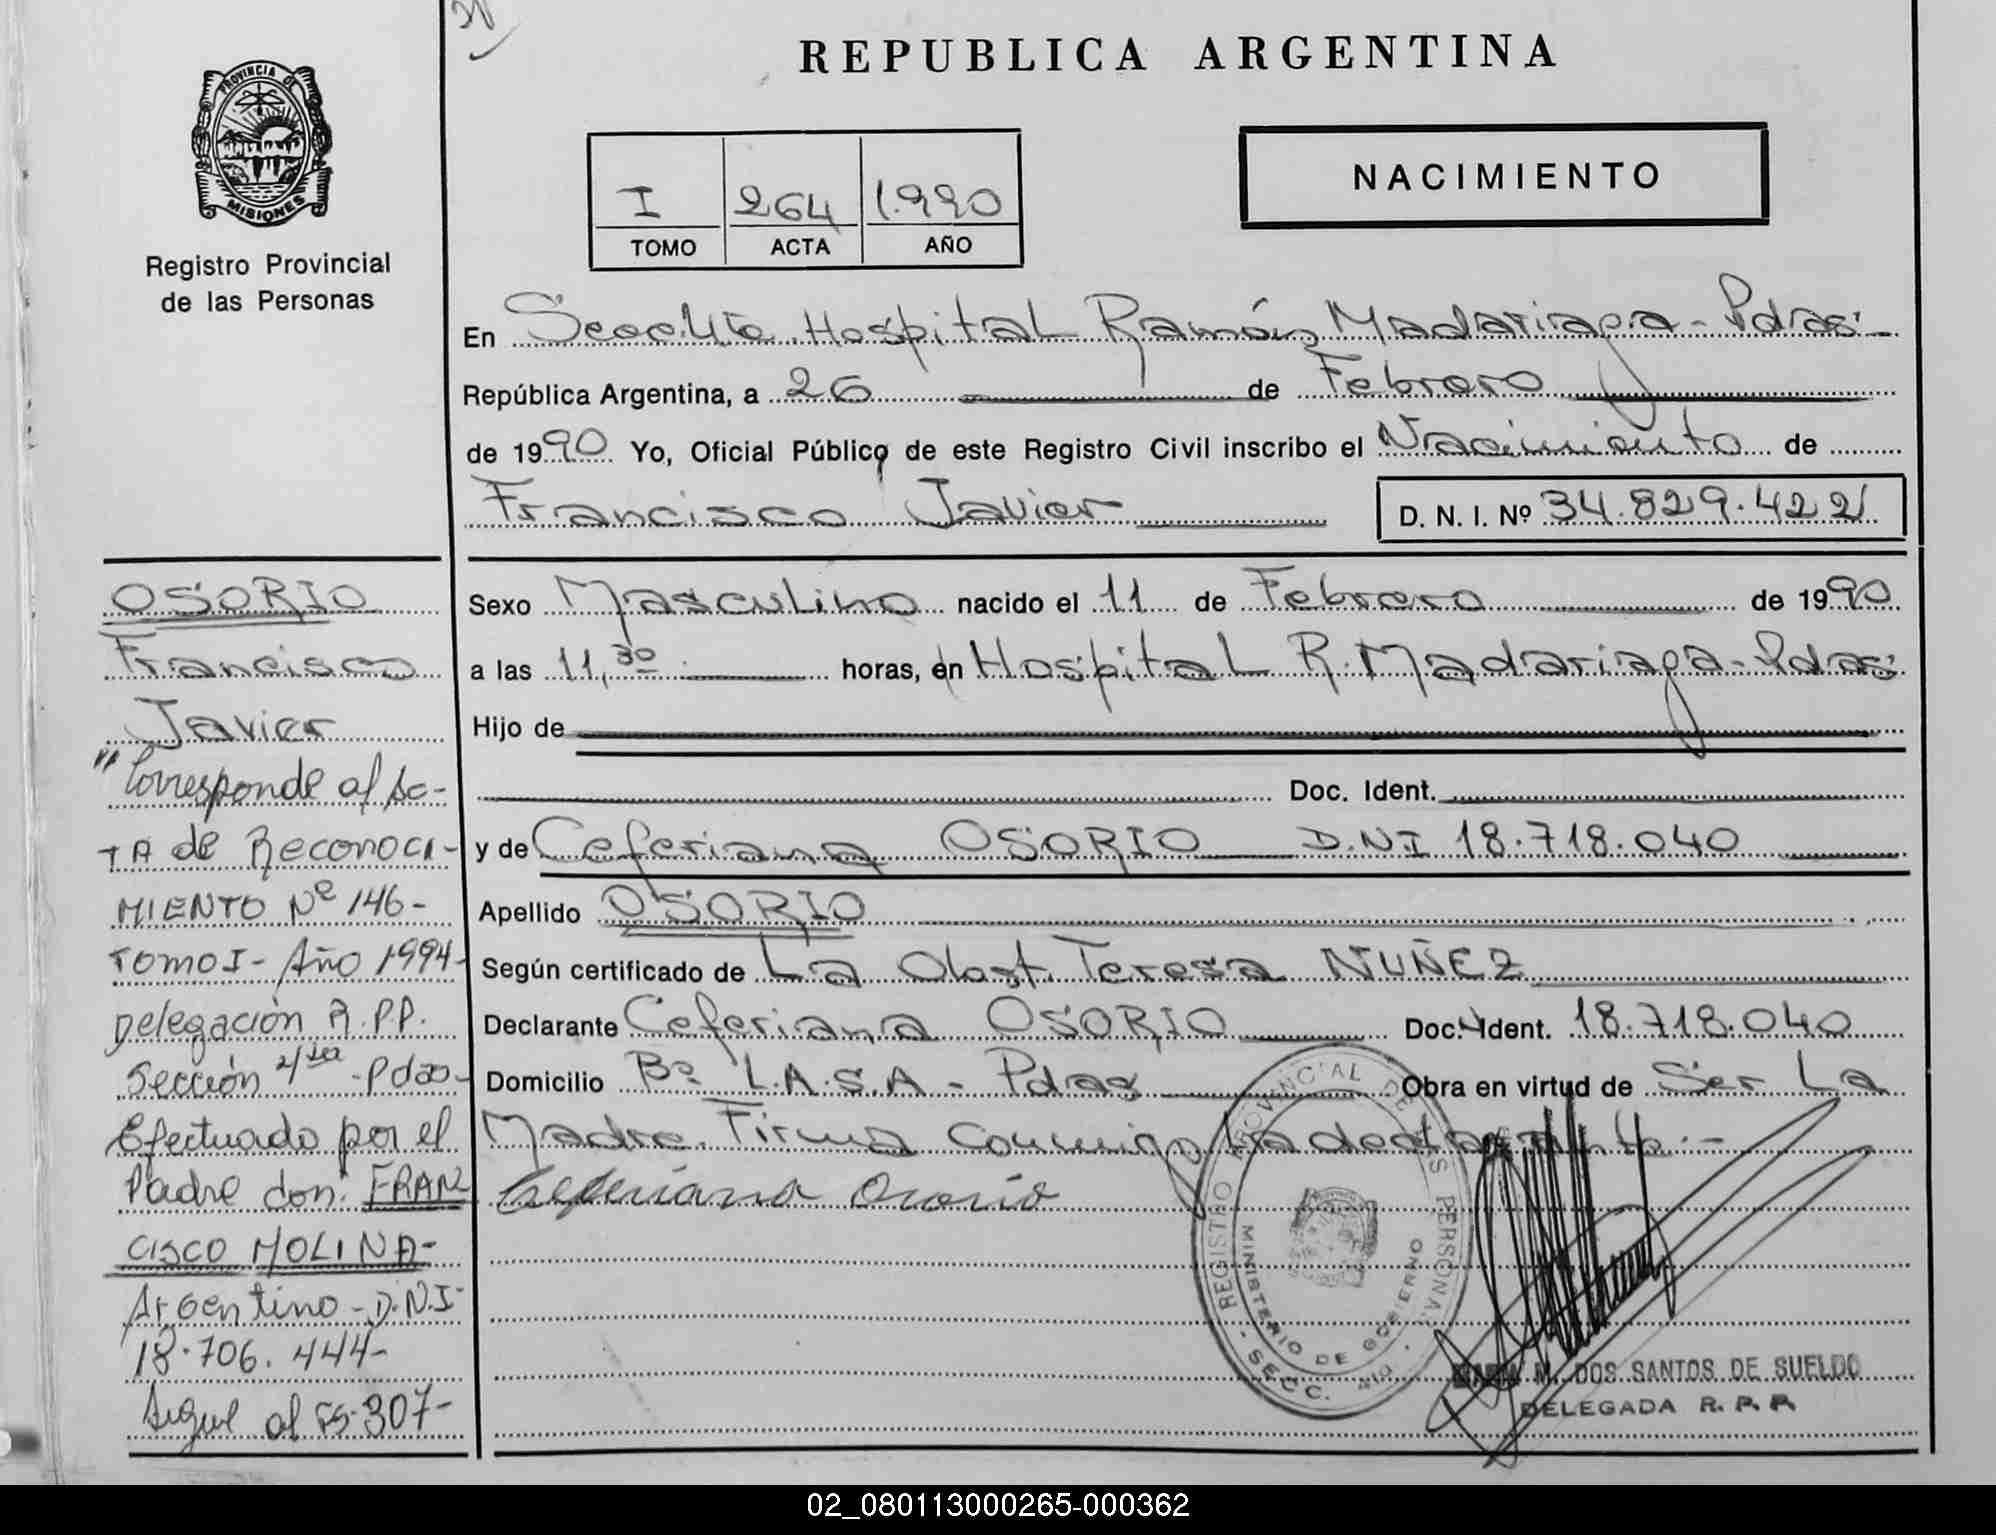 REPUBLICA ARGENTINA
PROVINCIA DE
MISIONES
Registro Provincial
de las Personas
I 264 1.990
TOMO ACTA AÑO
NACIMIENTO
En Secc. 4ta Hospital Ramón Madariaga - Pdas.-
República Argentina, a 26 de Febrero
de 1990 Yo, Oficial Público de este Registro Civil inscribo el Nacimiento de
Francisco Javier
D. N. I. Nº 34.829.422
OSORIO
Francisco
Javier
"Corresponde al Ac-
TA de Reconoci-
MIENTO Nº 146-
TOMO I- Año 1994-
Delegación R.P.P.
Sección 4ta -Pdas-
Efectuado por el
Padre don: FRAN
CISCO MOLINA-
Argentino - D.N.I-
18.706.444-
Sigue al FS. 307-
Sexo Masculino nacido el 11 de Febrero de 1990
a las 11,30 horas, en Hospital R. Madariaga - Pdas.
Hijo de
Doc. Ident.
y de Ceferiana OSORIO D.N.I 18.718.040
Apellido OSORIO
Según certificado de La Obst. Teresa NUÑEZ
Declarante Ceferiana OSORIO Doc. Ident. 18.718.040
Domicilio Bº L.A.S.A - Pdas Obra en virtud de Ser La
Madre. Firma conmigo La declarante.-
Ceferiana Osorio
REGISTRO PROVINCIAL DE LAS PERSONAS
MINISTERIO DE GOBIERNO
SECC. 4ta
MARIA M. DOS SANTOS DE SUELDO
DELEGADA R. P. P.
02_080113000265-000362